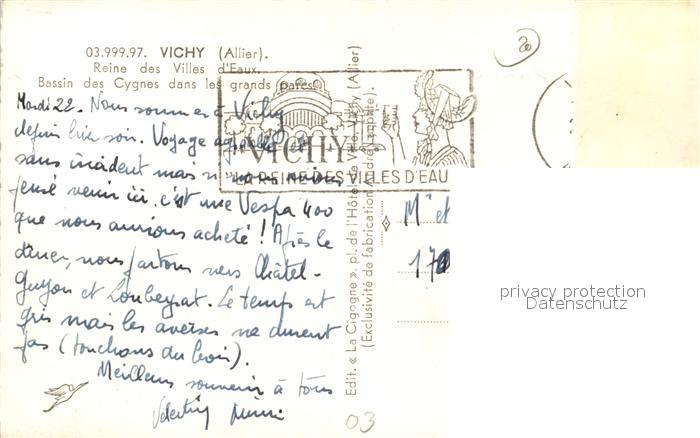 03.999.97. VICHY (Allier).
Reine des Villes d'Eaux.
Bassin des Cygnes dans les grands parcs.
Mardi 22. Nous sommes à Vichy
depuis hier soir. Voyage agréable et
sans incident mais si
pensé venir ici. c'est une Vespa 400
que nous aurions acheté ! Après le
dîner, nous partons vers Châtel-
Guyon et Loubeyrat. Le temps est
gris mais les averses ne durent
pas (touchons du bois).
Meilleurs souvenirs à tous
VICHY
LA REINE DES VILLES D'EAU
Edit. « La Cigogne », pl. de l'Hôtel de Ville, Vichy (Allier)
(Exclusivité de fabrication
20
M et
170
03
privacy protection
Datenschutz